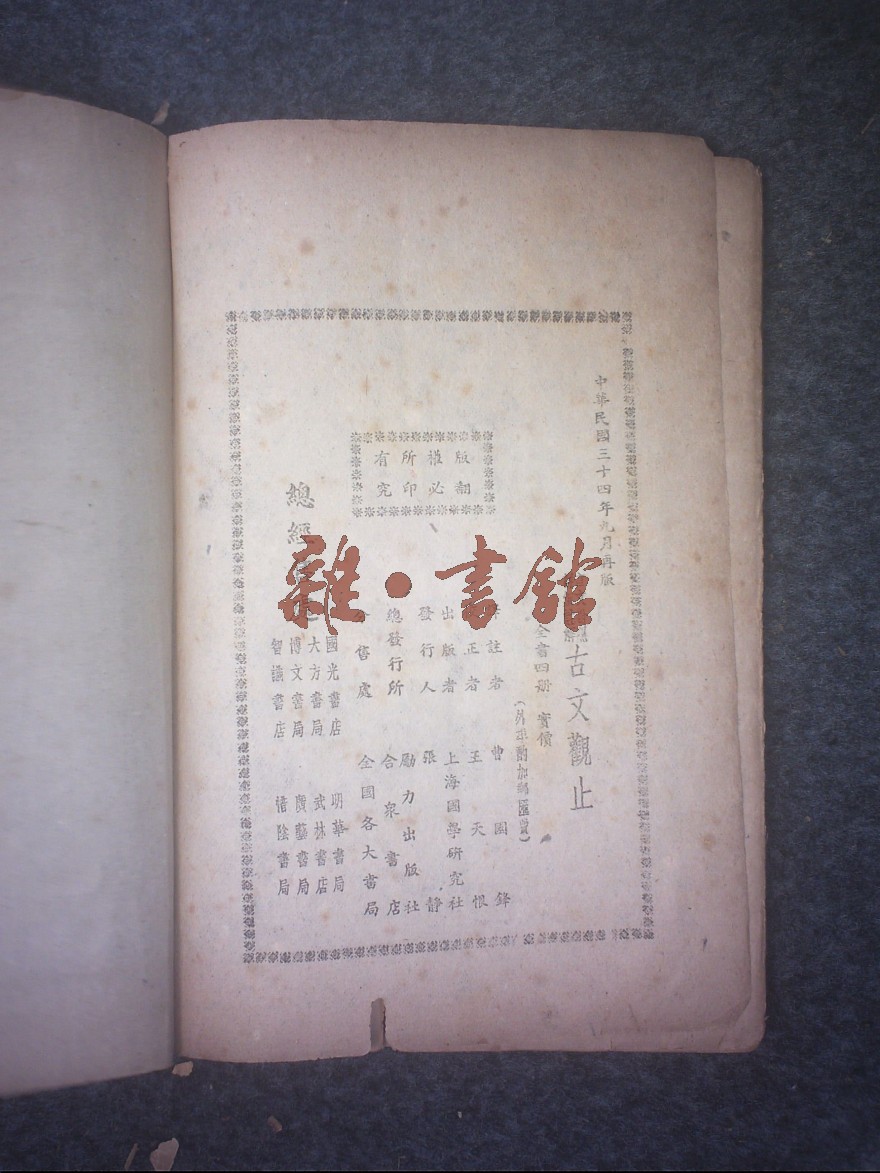 中華民國三十四年九月再版
古文觀止
全書四册 實價
(外埠酌加郵匯費)
註者 曹國鋒
正者 王天恨
出版者 上海國學研究社
發行人 張靜
總發行所 勵力出版社
合泉書店
分售處 全國各大書局
版權所有
翻印必究
總經
國光書店 明華書局
大方書局 武林書店
博文書局 廣藝書局
智識書店 惜陰書局
雜·書館